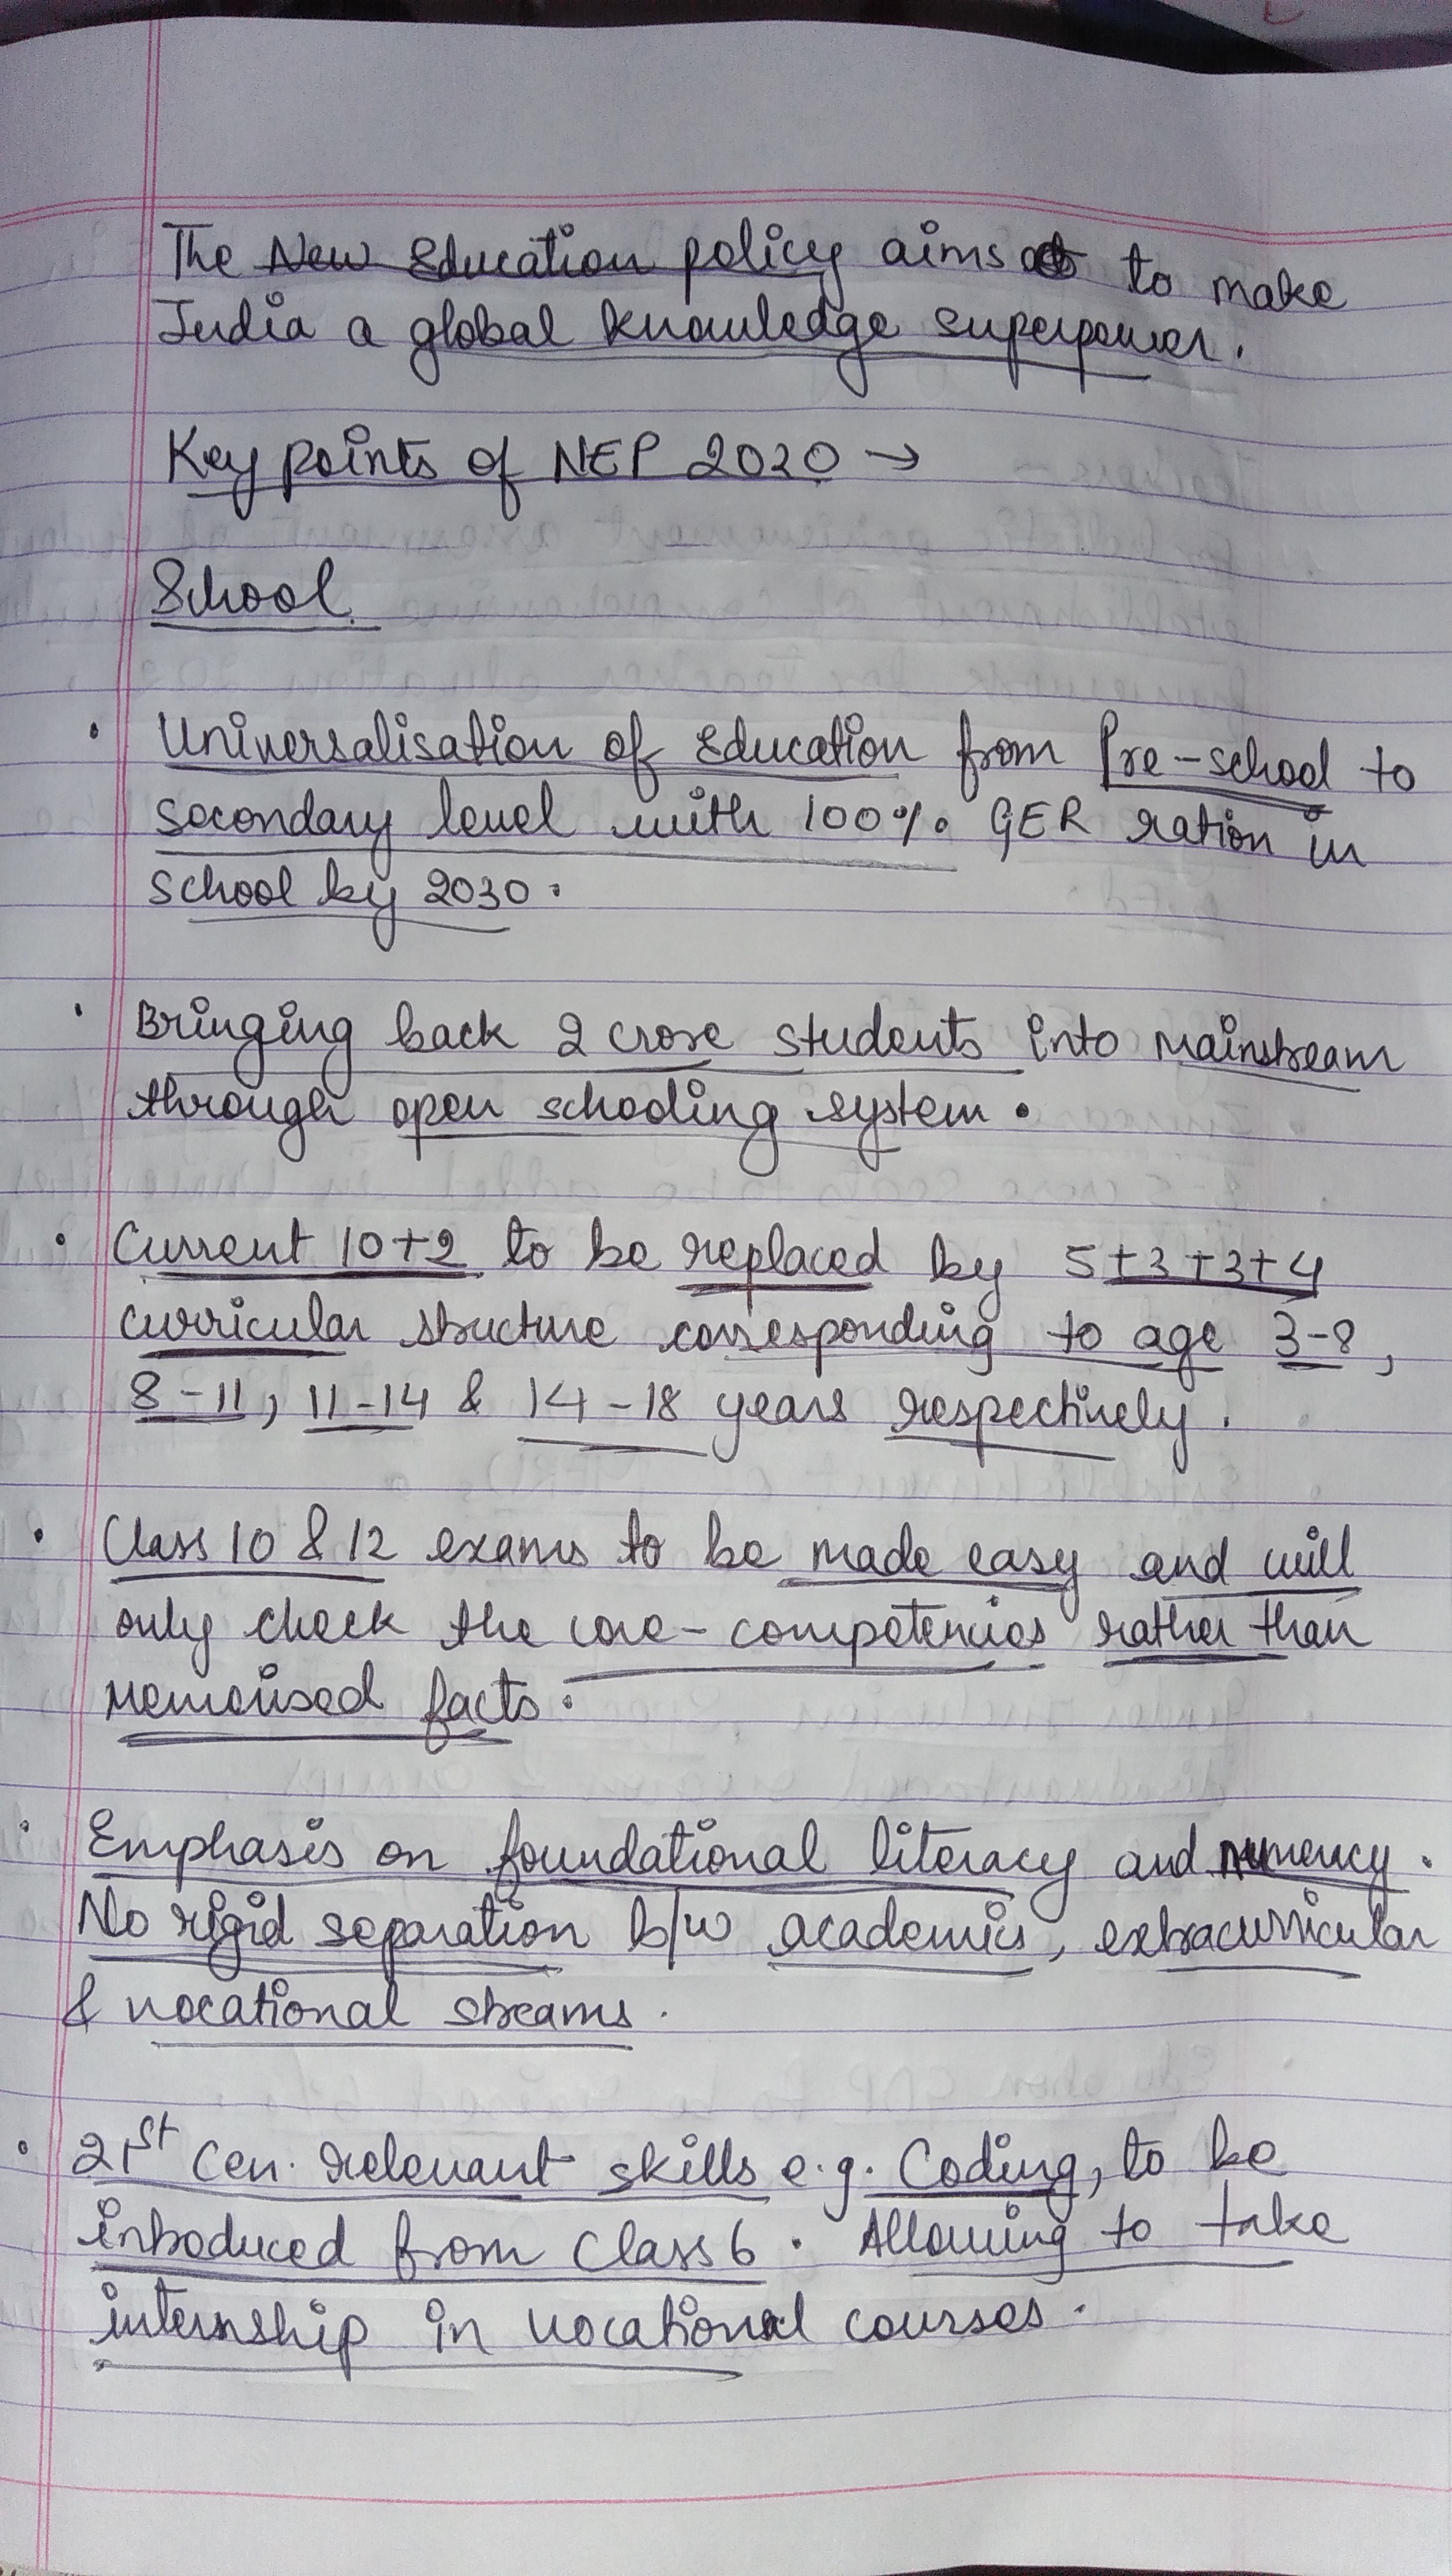 The New Education policy aims to make
India a global knowledge superpower.
Key points of NEP 2020 →
School
• Universalisation of Education from Pre-school to
secondary level with 100% GER ration in
school by 2030.
• Bringing back 2 crore students into mainstream
through open schooling system.
• Current 10+2 to be replaced by 5+3+3+4
curricular structure corresponding to age 3-8,
8-11, 11-14 & 14-18 years respectively.
• Class 10 & 12 exams to be made easy and will
only check the core-competencies rather than
memorised facts.
• Emphasis on foundational literacy and numency.
No rigid separation b/w academics, extracurricular
& vocational streams.
• 21st Cen. relevant skills e.g. Coding, to be
introduced from Class 6. Allowing to take
internship in vocational courses.